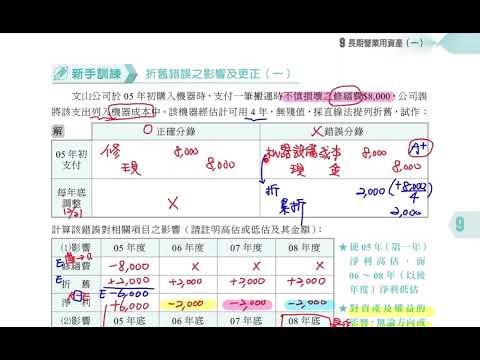 9 長期營業用資產（一）
新手訓練 折舊錯誤之影響及更正（一）
文山公司於 05 年初購入機器時，支付一筆搬運時不慎損壞之修繕費$8,000，公司誤
將該支出列入機器成本中。該機器經估計可用 4 年，無殘值，採直線法提列折舊，試作：
解 O正確分錄 X錯誤分錄
05 年初 修 8,000 機器設備成本 8,000 A+
支付 現 8,000 現 金 8,000
每年底 折 2,000 (+8,000/4)
調整 X 累折 2,000
12/31
9
計算該錯誤對相關項目之影響（請註明高估或低估及其金額）：
(1)影響 05 年度 06 年度 07 年度 08 年度
修繕費 -8,000 X X X
折 舊 +2,000 +2,000 +2,000 +2,000
E -6,000
淨 利 +6,000 -2,000 -2,000 -2,000
(2)影響 05 年底 06 年底 07 年底 08 年底
★ 使 05 年（第一年）
淨利高估，而
06 ~ 08 年（以後
年度）淨利低估
★ 對資產及權益的
影響，無論方向或